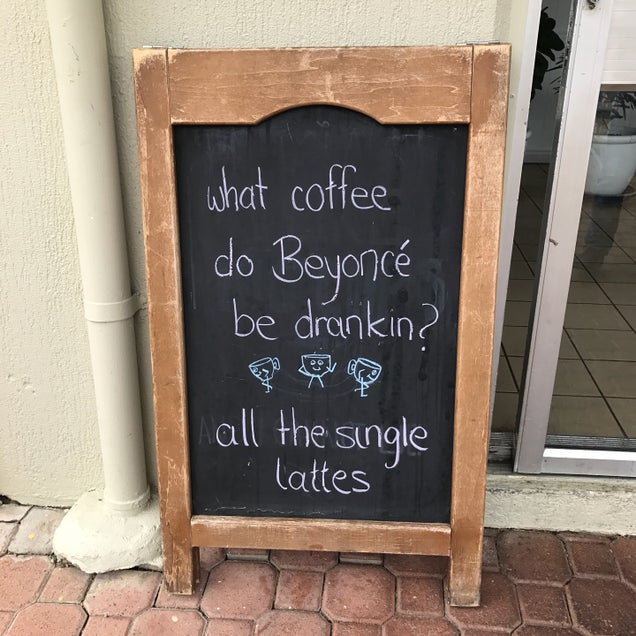 what coffee
do Beyoncé
be drankin?
all the single
lattes